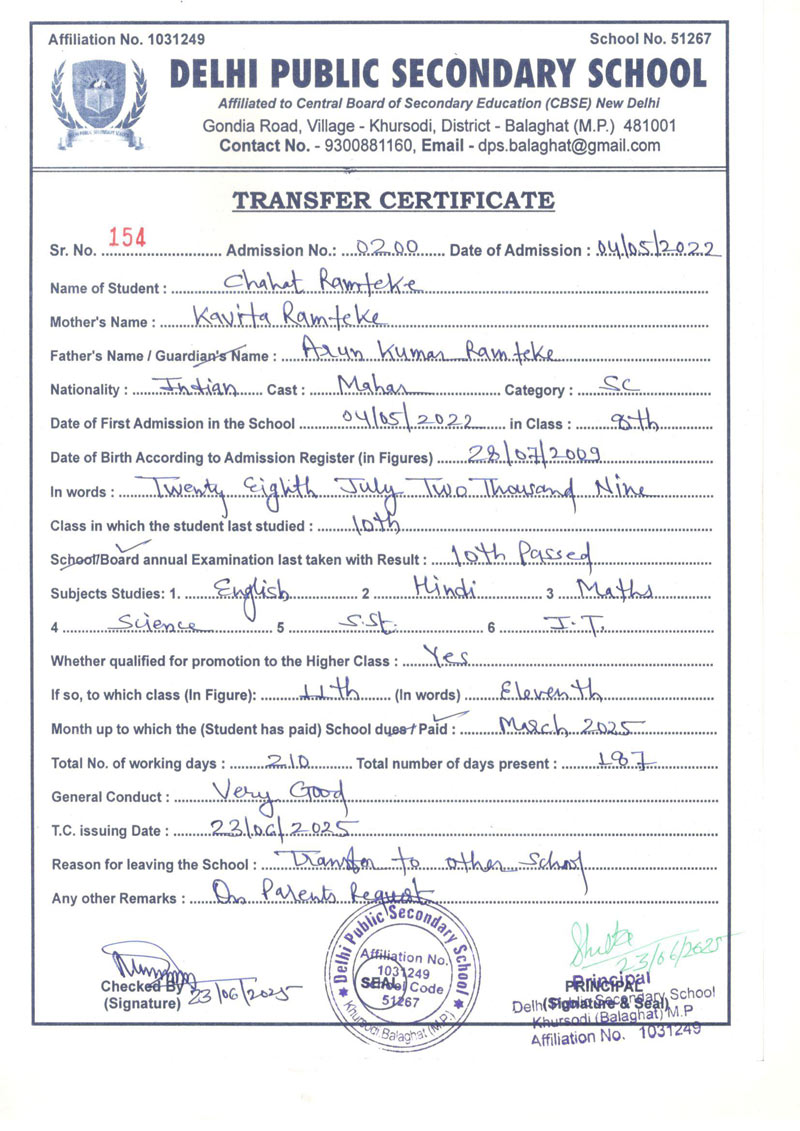 Affiliation No. 1031249 School No. 51267
DELHI PUBLIC SECONDARY SCHOOL
Affiliated to Central Board of Secondary Education (CBSE) New Delhi
Gondia Road, Village - Khursodi, District - Balaghat (M.P.) 481001
Contact No. - 9300881160, Email - dps.balaghat@gmail.com
TRANSFER CERTIFICATE
Sr. No. 154 Admission No.: 0200 Date of Admission : 04/05/2022
Name of Student : Chahat Ramteke
Mother's Name : Kavita Ramteke
Father's Name / Guardian's Name : Arun Kumar Ramteke
Nationality : Indian Cast : Mahar Category : SC
Date of First Admission in the School 04/05/2022 in Class : 8th
Date of Birth According to Admission Register (in Figures) 28/07/2009
In words : Twenty Eighth July Two Thousand Nine
Class in which the student last studied : 10th
School/Board annual Examination last taken with Result : 10th Passed
Subjects Studies: 1. English 2 Hindi 3 Maths
4 Science 5 S.St. 6 I.T.
Whether qualified for promotion to the Higher Class : Yes
If so, to which class (In Figure): 11th (In words) Eleventh
Month up to which the (Student has paid) School dues/Paid : March 2025
Total No. of working days : 210 Total number of days present : 187
General Conduct : Very Good
T.C. issuing Date : 23/06/2025
Reason for leaving the School : Transfer to other school
Any other Remarks : On Parents Request
Checked By
(Signature) 23/06/2025
Delhi Public Secondary School
Affiliation No.
1031249
SEAL
School Code
51267
Khursodi Balaghat (M.P.)
23/06/2025
PRINCIPAL
(Signature & Seal)
Principal
Delhi Public Secondary School
Khursodi (Balaghat) M.P
Affiliation No. 1031249